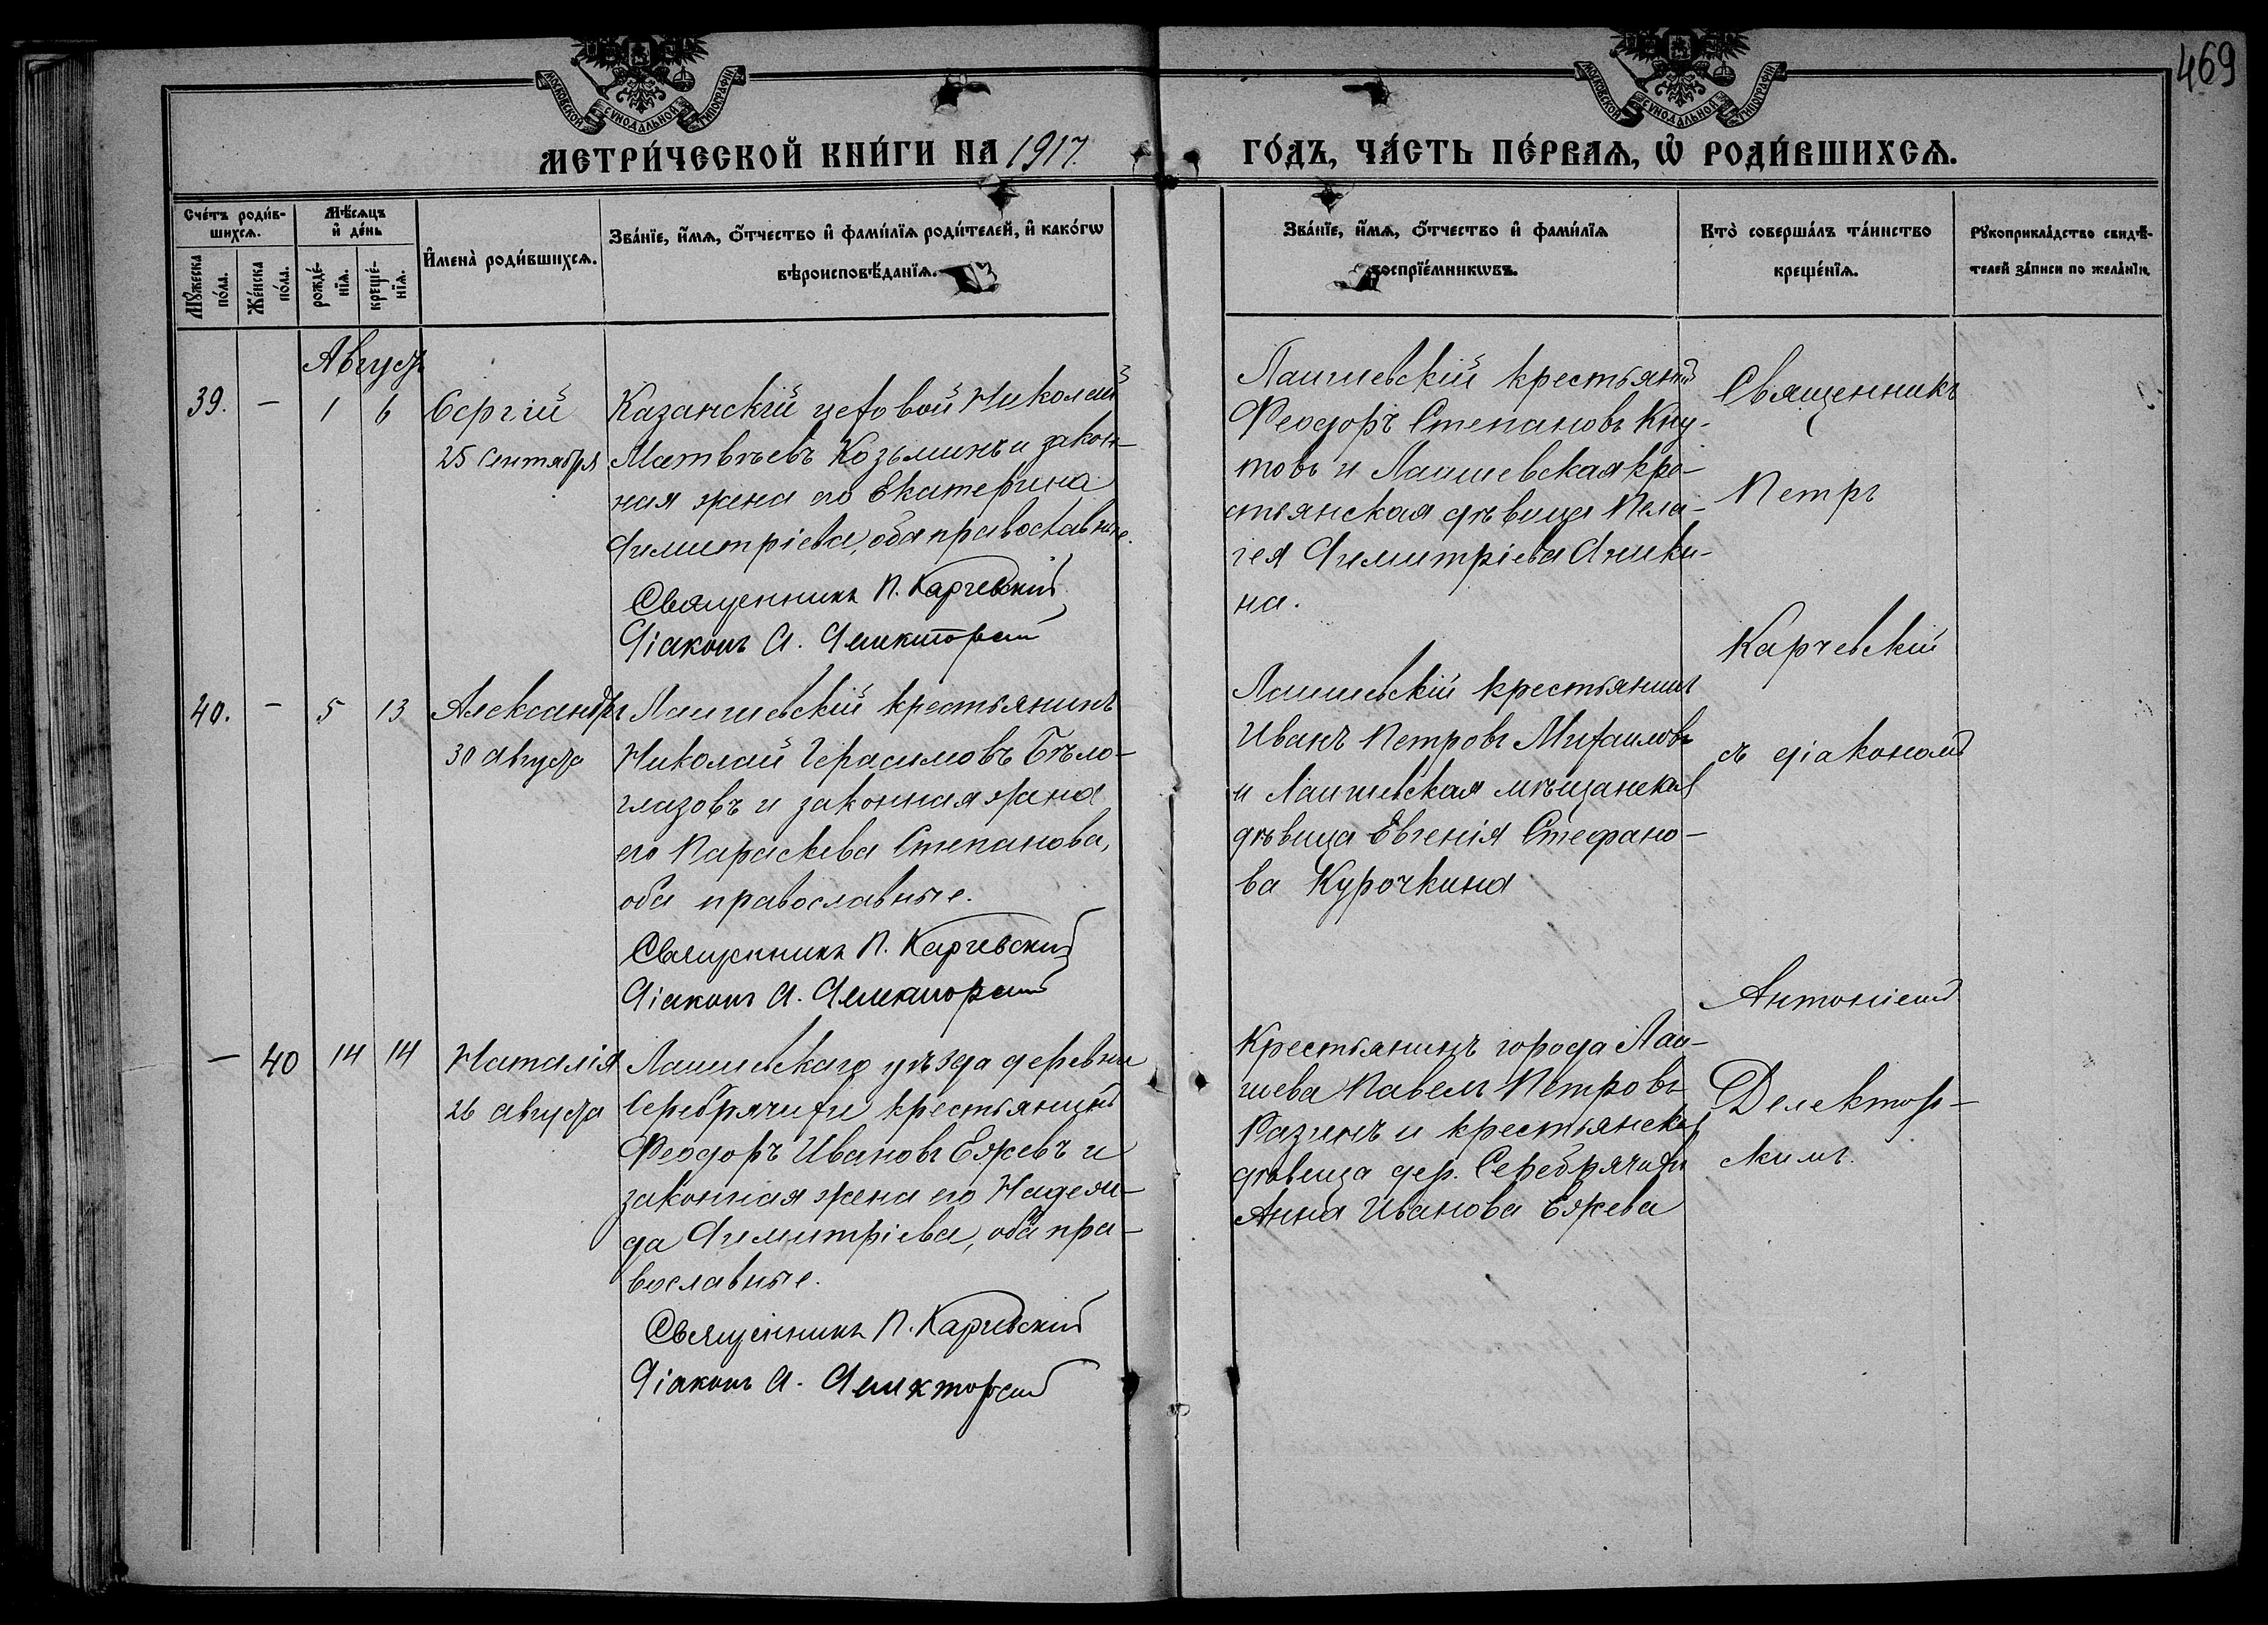 469
МОСКОВСКОЙ СѴНОДАЛЬНОЙ ТИПОГРАФІИ
МОСКОВСКОЙ СѴНОДАЛЬНОЙ ТИПОГРАФІИ
МЕТРИ́ЧЕСКОЙ КНИ́ГИ НА 1917.
ГО́ДЪ, ЧА́СТЬ ПЕ́РВАѦ, Ѡ҆ РОДИ́ВШИХСѦ.
Сче́тъ роди́в-
шихсѧ.
Мѣ́сѧцъ
и҆ де́нь
Мꙋ́жеска
по́ла.
Же́нска
по́ла.
рожде́-
нїѧ.
креще́-
нїѧ.
И҆мена̀ роди́вшихсѧ.
Зва́нїе, и҆́мѧ, ѻ҆́тчество и҆ фами́лїѧ роди́телей, и҆ како́гѡ
вѣроисповѣ́данїѧ.
Зва́нїе, и҆́мѧ, ѻ҆́тчество и҆ фами́лїѧ
воспрїе́мникѡвъ.
Кто̀ соверша́лъ та́инство
креще́нїѧ.
Рꙋкоприкла́дство свидѣ́-
телей за́писи по жела́нїю.
Августъ
39. — 1 6 Сергій
25 Сентября
Казанскій цеховой Николай
Матвѣевъ Козьминъ и закон-
ная жена его Екатерина
Димитріева, оба православные.
Священникъ П. Карчевскій
Діаконъ А. Делекторскій
Лаишевскій крестьянинъ
Феодоръ Степановъ Кну-
товъ и Лаишевская кре-
стьянская дѣвица Пела-
гея Димитріева Аники-
на.
40. — 5 13 Александръ
30 Августа
Лаишевскій крестьянинъ
Николай Герасимовъ Бѣло-
глазовъ и законная жена
его Параскева Степанова,
оба православные.
Священникъ П. Карчевскій
Діаконъ А. Делекторскій
Лаишевскій крестьянинъ
Иванъ Петровъ Михаиловъ
и Лаишевская мѣщанская
дѣвица Евгенія Стефано-
ва Курочкина
— 40 14 14 Наталія
26 Августа
Лаишевскаго уѣзда деревни
Серебрячихи крестьянинъ
Феодоръ Ивановъ Ежевъ и
законная жена его Надеж-
да Димитріева, оба пра-
вославные.
Священникъ П. Карчевскій
Діаконъ А. Делекторскій
Крестьянинъ города Лаи-
шева Павелъ Петровъ
Разинъ и крестьянская
дѣвица дер. Серебрячихи
Анна Иванова Ежева
Священникъ
Петръ
Карчевскій
съ діакономъ
Антоніемъ
Делектор-
скимъ.